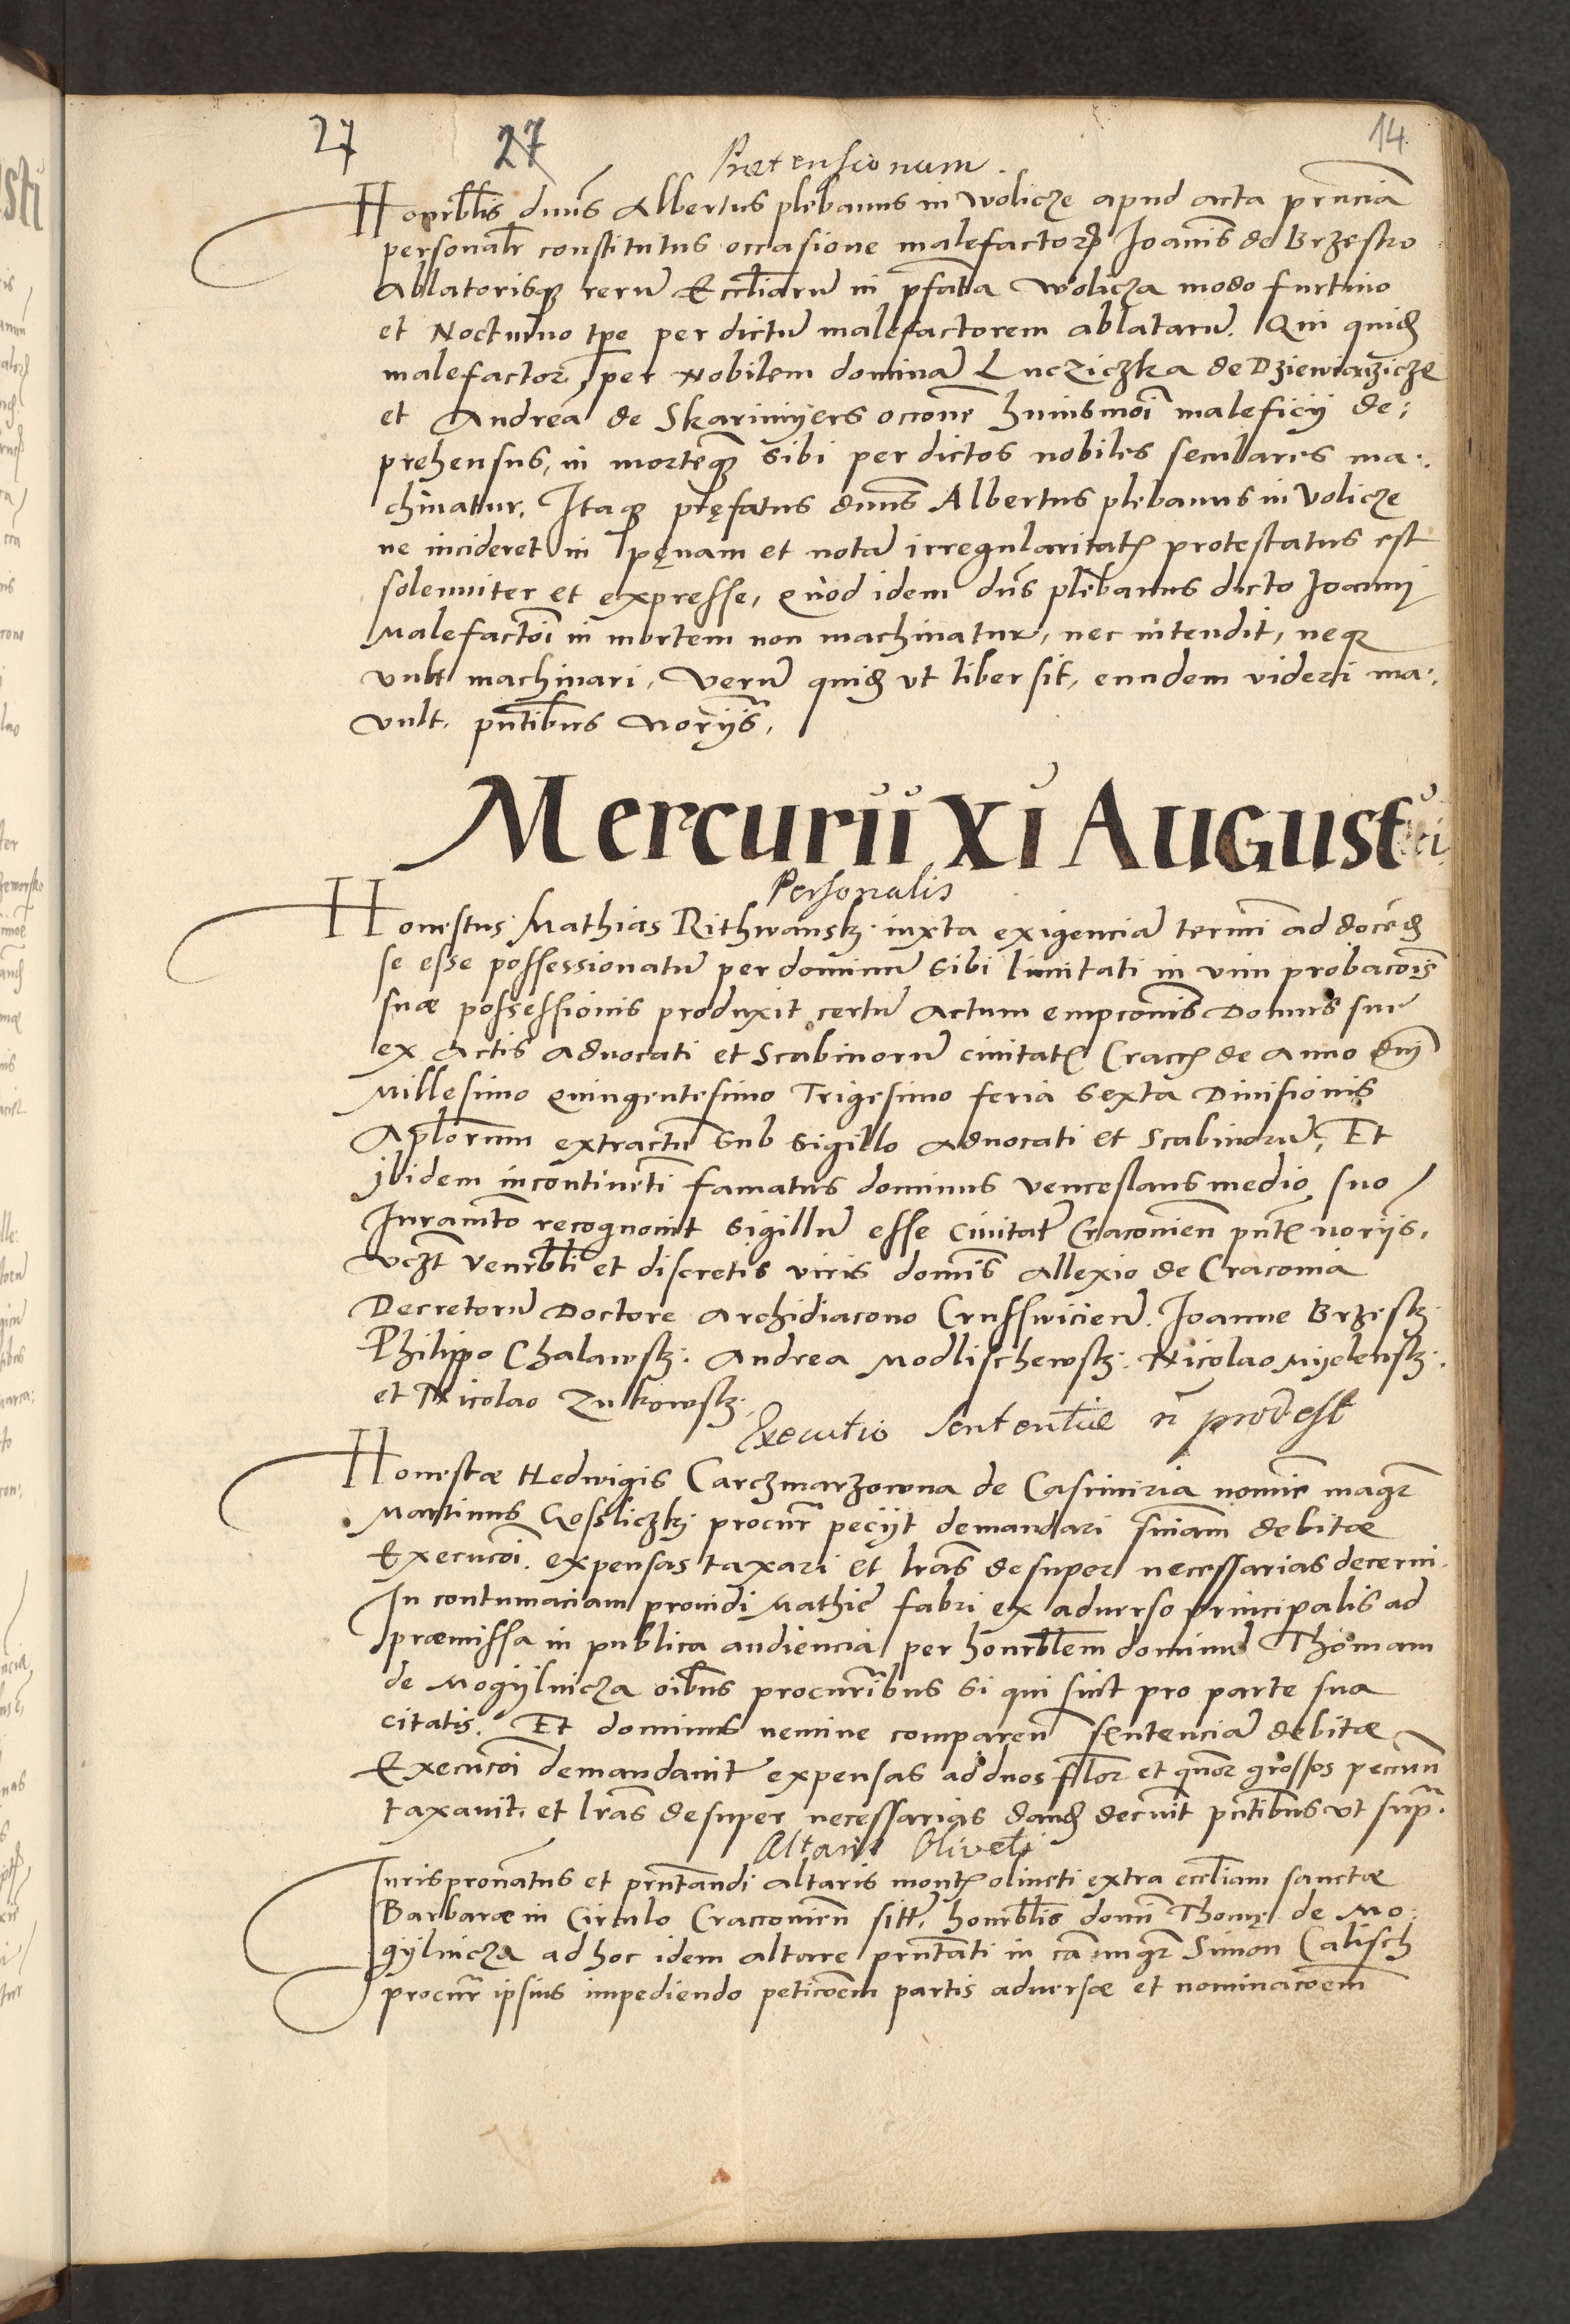 27 27 14
Prætensionum.
Honrblis dnus Albertus plebanus in Wolicze apud acta prncia
personalr constitutus occasione malefactoris Joanis de Brzesko
Ablatorisq rerum Ecclliarum in pfatta Wolicza modo furtivo
et Nocturno tpe per dictum malefactorem ablatarum. Qui quid
malefactor per Nobilem dominam Lucziczka de Dziewiarzicze
et Andream de Skarimyers occone huiusmoi maleficij de:
prehensus, in mortemq sibi per dictos nobiles seculares ma:.
chinatur. Itaq pręfatus dnus Albertus plebanus in Volicze
ne incideret in pęnam et notam irregularitatis protestatus est
solenniter et expresse, quod idem dns plebanus dicto Joanni
Malefactori in mortem non machinatur, nec intendit, neq
vult machinari, verum quid ut liber sit, eundem videri ma:.
vult. pntibus Noriis.
Mercurii XI Augusti
Personalis
Honestus Mathias Rithwansky iuxta exigenciam termi ad docend
se esse possessionatum per dominum sibi limitati in vim probacois
suæ possessionis produxit certum actum empconis Domus sue
ex Actis Advocati et Scabinorum civitatis Cracc de Anno dni
Millesimo quingentesimo Trigesimo feria sexta Divisionis
Aplorum extractum sub sigillo advocati et Scabinorum. Et
ibidem incontinenti famatus dominus Venceslaus medio suo
Juramto recognovit sigillum esse Civitat Cracovien pnt noriis.
vczt Venrbli et discretis viris domis Allexio de Cracovia
Decretorum Doctore Archidiacono Crusswicien. Joanne Brzesky
Philippo Chalawsky. Andrea Modlischewsky. Nicolao Myelensky.
et Nicolao Zukowsky.
Executio sententiæ n prodest
Honestæ Hedwigis Carczmarzowna de Casimiria nomine magr
Martinus Gosliczky procur peciit demandari sniam debitæ
Execucoi. expensas taxari et lras desuper necessarias decerni.
In contumaciam providi Mathie fabri ex adverso principalis ad
præmissa in publica audiencia per honrblem dominum Thomam
de Mogylnicza oibus procuribus si qui sint pro parte sua
citatis. Et dominus nemine comparen sentenciam debitæ
Execucoi demandavit expensas ad duos flor et quor grossos pecun
taxavit, et lras desuper necessarias dand decrevit pntibus ut supra.
Altaris Oliveti
Jurispronatus et prntandi altaris montis oliveti extra eccliam sanctæ
Barbaræ in Circulo Craccovien sitt, honrblis domi Thomę de Mo:
gylnicza ad hoc idem altare prntati in ca mgr Simon Calisch
procur ipsius impediendo peticoem partis adversæ et nominacoem